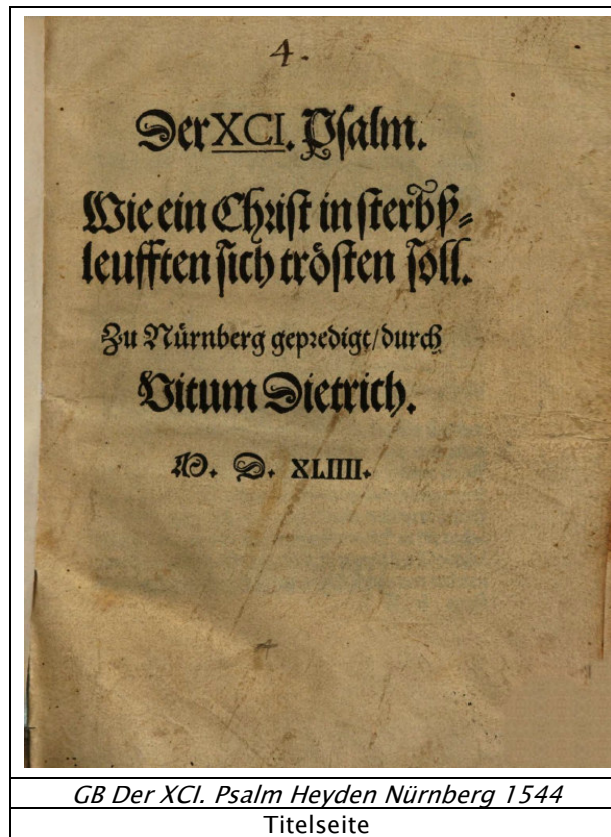 4.
Der XCI. Psalm.
Wie ein Christ in sterbß-
leufften sich trösten soll.
Zu Nürnberg gepredigt/durch
Vitum Dietrich.
M. D. XLIIII.
GB Der XCI. Psalm Heyden Nürnberg 1544
Titelseite